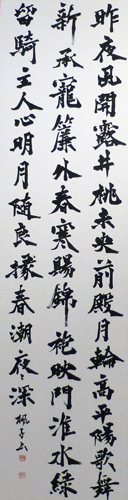 昨夜風開露井桃未央前殿月輪高平陽歌舞
新承寵簾外春寒賜錦袍映門淮水綠
留騎主人心明月隨良掾春潮夜々深